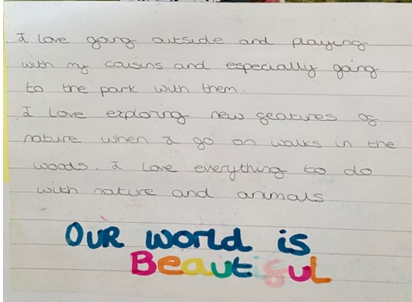 I love going outside and playing
with my cousins and especially going
to the park with them.
I love exploring new features of
nature when I go on walks in the
woods. I love everything to do
with nature and animals
OUR world is
Beautiful